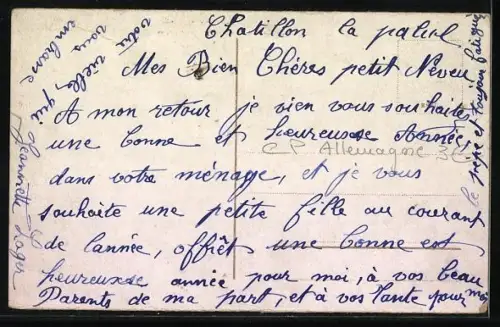 Chatillon la palud
Mes Bien Chères petit Neveu
A mon retour je vien vous souhaiter
une bonne et heureuse Année,
CP Allemagne 3€
dans votre ménage, et je vous
souhaite une petite fille au courant
de lannée, offrêt une bonne est
heureuse année pour moi, à vos beau
Parents de ma part, et à vos Tante pour moi
et toujour fatigué
votre vielle, qui
vous
embrasse
Jeannette